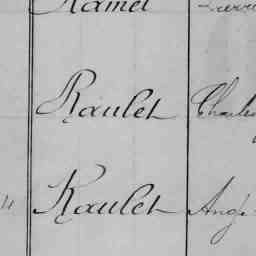 Ramet
Raulet Charles
Raulet Ange